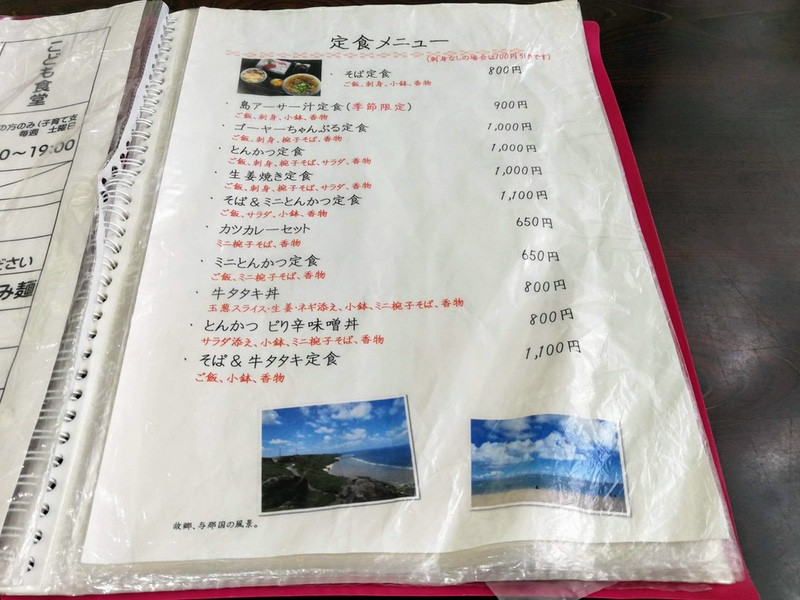 こども食堂
の方のみ(子育て支
毎週 土曜日
0～19:00
ださい
み麺
定食メニュー
(刺身なしの場合は100円引きです)
・そば定食 800円
ご飯、刺身、小鉢、香物
・島アーサー汁定食(季節限定) 900円
ご飯、刺身、小鉢、香物
・ゴーヤーちゃんぷる定食 1,000円
ご飯、刺身、椀子そば、香物
・とんかつ定食 1,000円
ご飯、刺身、椀子そば、サラダ、香物
・生姜焼き定食 1,000円
ご飯、刺身、椀子そば、サラダ、香物
・そば＆ミニとんかつ定食 1,100円
ご飯、サラダ、小鉢、香物
・カツカレーセット 650円
ミニ椀子そば、香物
・ミニとんかつ定食 650円
ご飯、ミニ椀子そば、香物
・牛タタキ丼 800円
玉葱スライス・生姜・ネギ添え、小鉢、ミニ椀子そば、香物
・とんかつ ピリ辛味噌丼 800円
サラダ添え、小鉢、ミニ椀子そば、香物
・そば＆牛タタキ定食 1,100円
ご飯、小鉢、香物
故郷、与那国の風景。